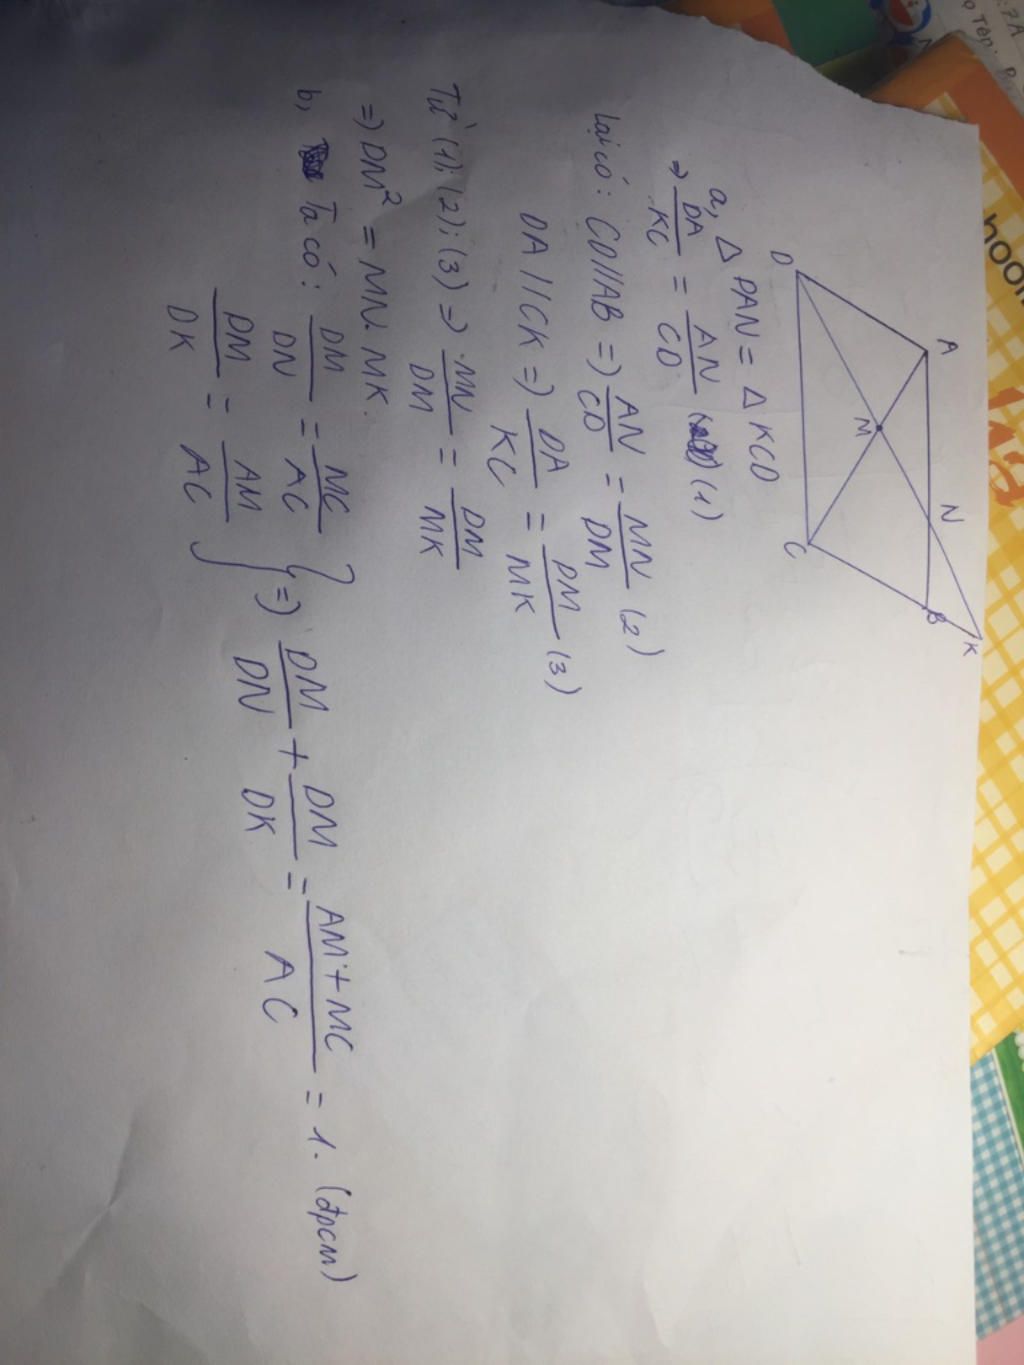 D
A
M
N
C
B
K
a, Δ DAN = Δ KCD
=> DA/KC = AN/CD (1)
Lại có: CD//AB => AN/CD = MN/DM (2)
DA//CK => DA/KC = DM/MK (3)
Từ (1); (2); (3) => MN/DM = DM/MK
=> DM² = MN.MK.
b, Ta có: DM/DN = MC/AC
DM/DK = AM/AC
} => DM/DN + DM/DK = AM+MC/AC = 1. (đpcm)